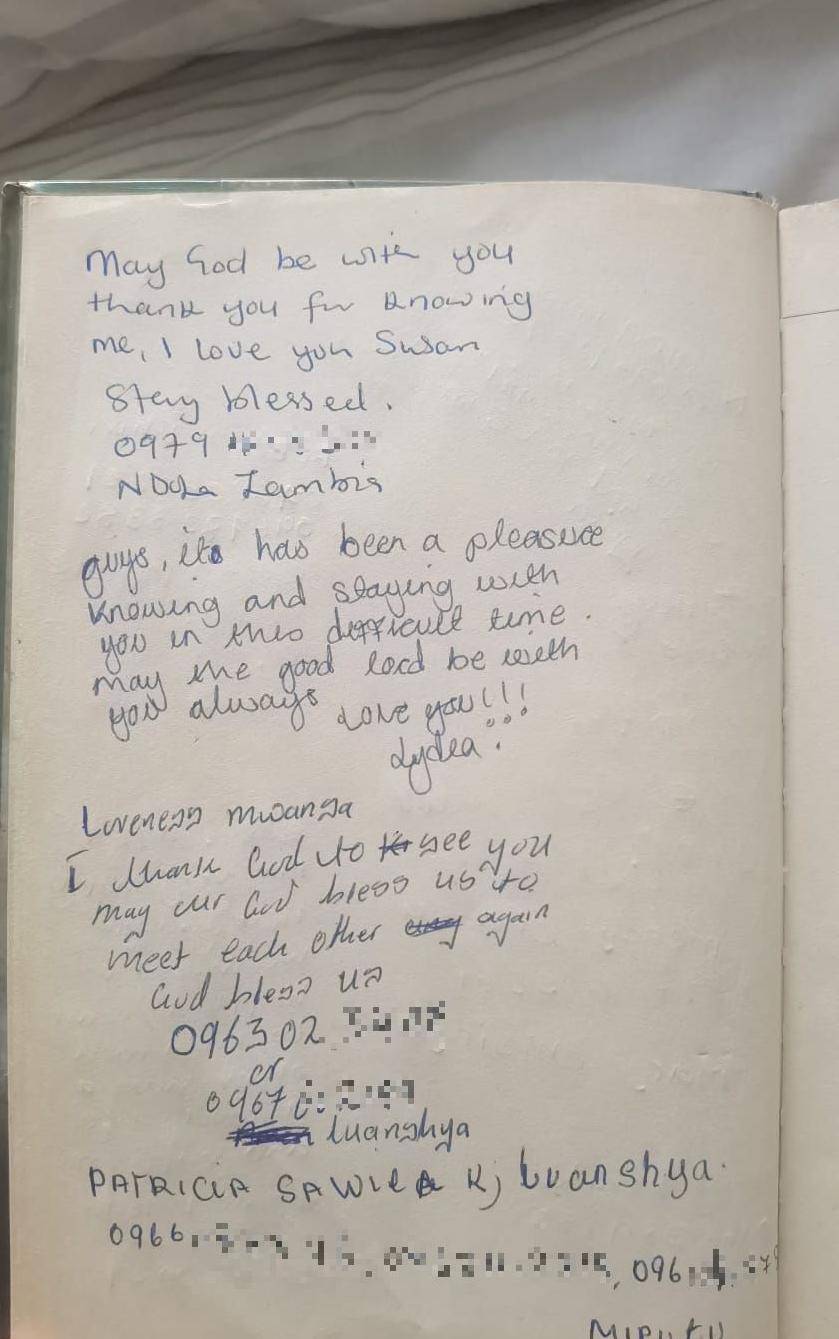 May God be with you
thank you for knowing
me, I love you Susan
Stay blessed.
0979
Ndola Zambia
guys, its has been a pleasure
knowing and staying with
you in this difficult time.
may the good lord be with
you always Love you!!!
Lydea.
Loveness mwansa
I thank God to see you
may our God bless us to
meet each other again
God bless us
096302
or
0967
Luanshya
PATRICIA K; Luanshya.
0966 , , 096